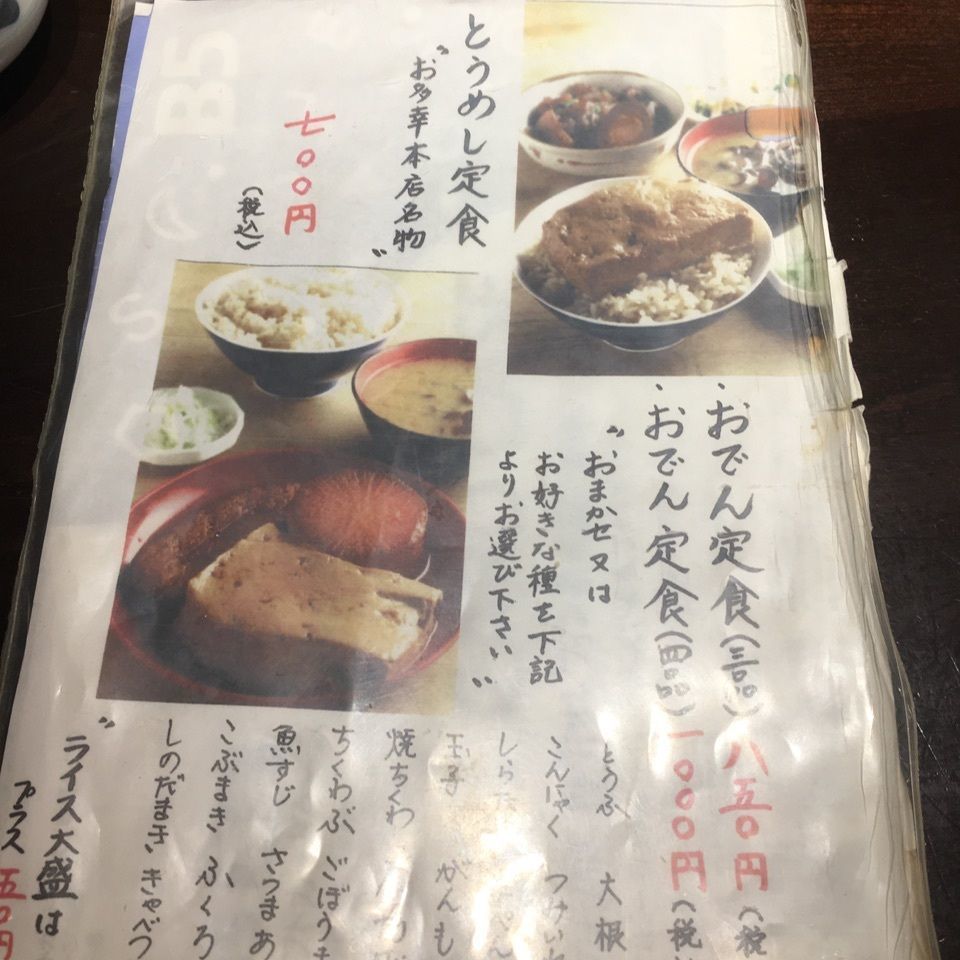 とうめし定食
〝お多幸本店名物〟
七〇〇円
(税込)
・おでん定食(三品)八五〇円(税
・おでん定食(四品)一〇〇〇円(税
〝おまかせ又は
お好きな種を下記
よりお選び下さい〟
とうふ 大根
こんにゃく
しらた
玉子 がんも
焼ちくわ
ちくわぶ ごぼう
魚すじ さつまあ
こぶまき ふくろ
しのだまき きゃべつ
〝ライス大盛は
プラス 五〇円